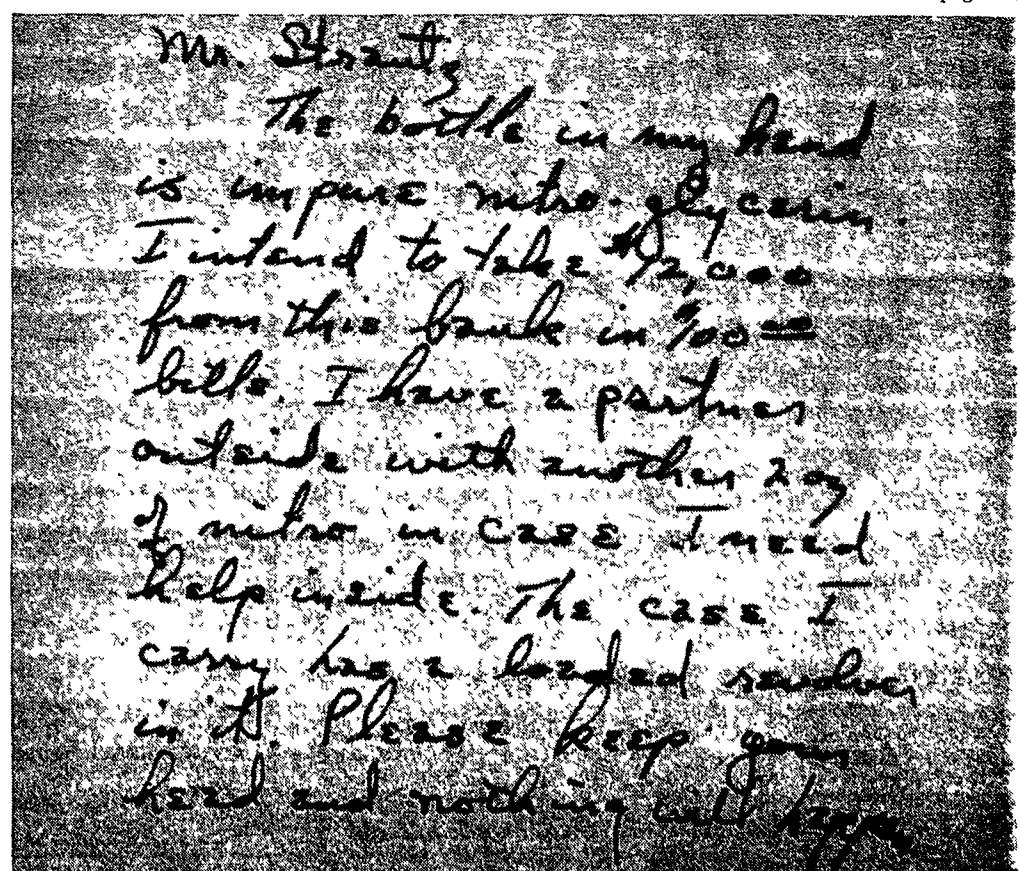 Mr. Strautz
The bottle in my hand
is impure nitro-glycerin.
I intend to take $12,000
from this bank in $100.00
bills. I have a partner
outside with another 2 oz
of nitro in case I need
help inside. The case I
carry has a loaded revolver
in it. Please keep your
head and nothing will happen